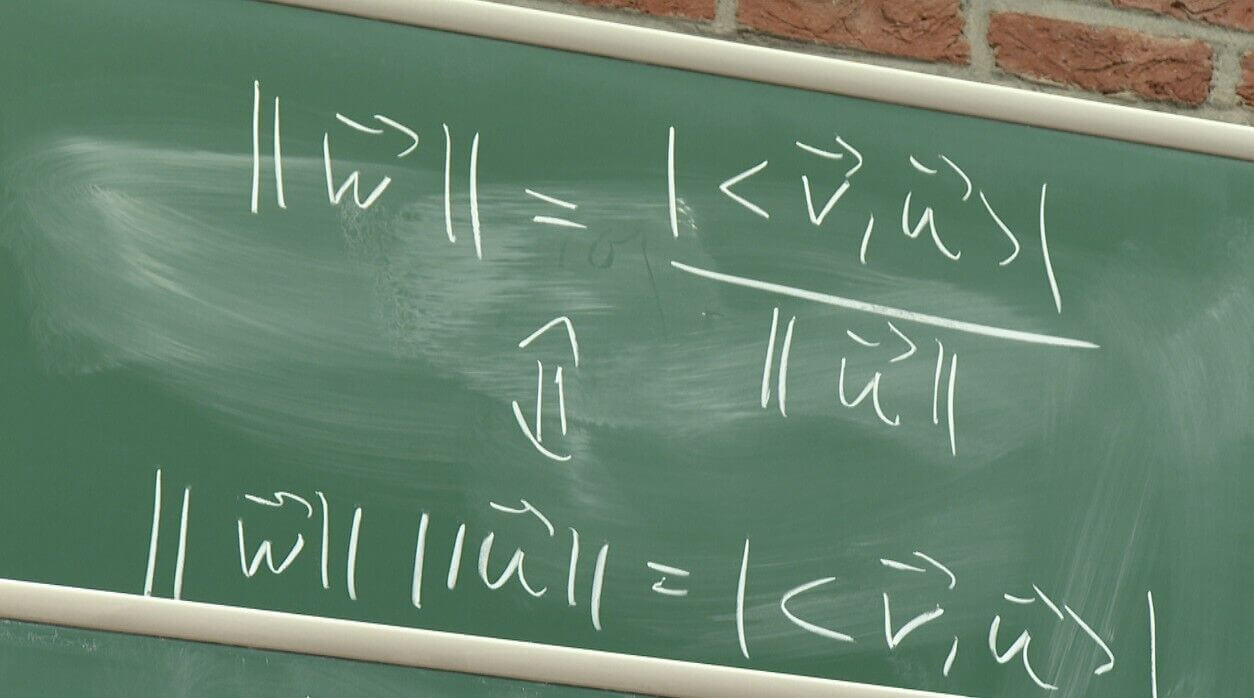 ‖w⃗‖ = |<v⃗, u⃗>| / ‖u⃗‖
⇕
‖w⃗‖ ‖u⃗‖ = |<v⃗, u⃗>|